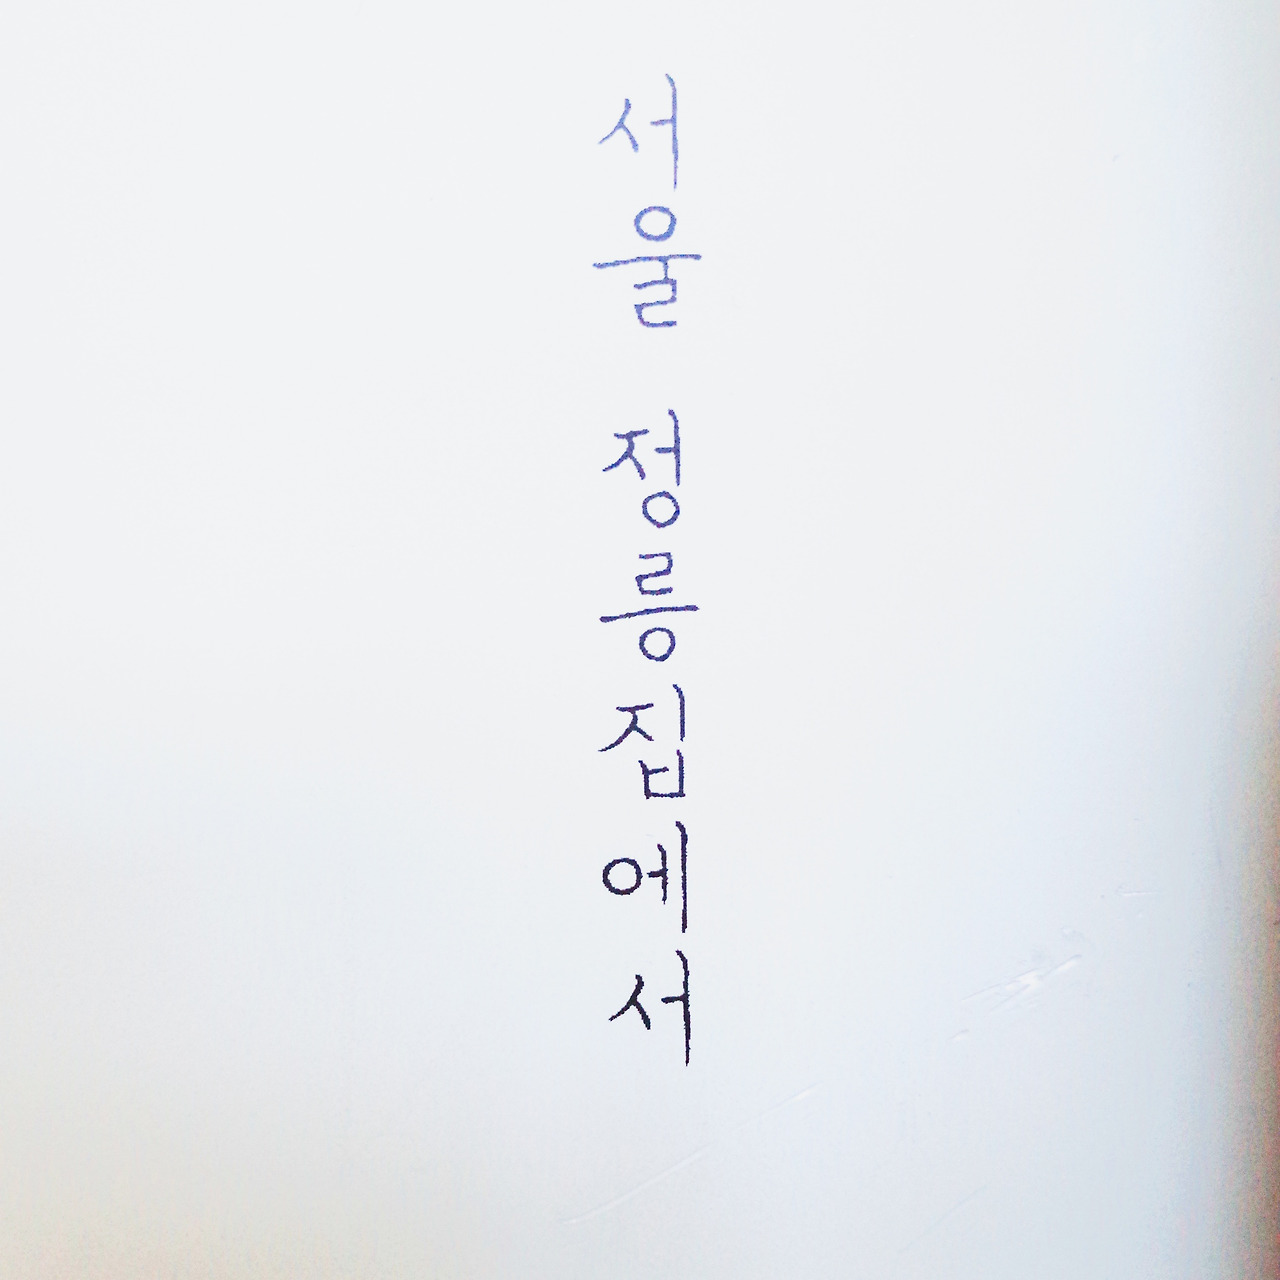 서울 정릉집에서